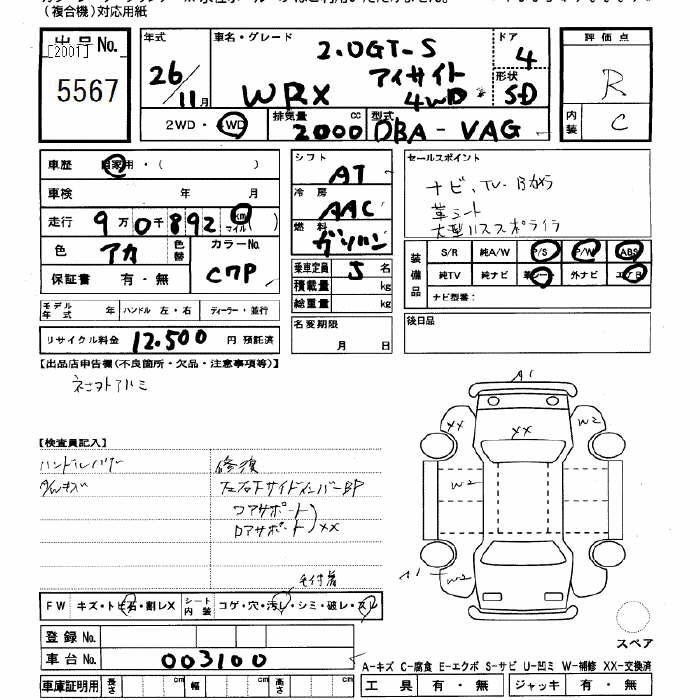 (複合機)対応用紙
出品No.
[2001]
5567
年式
26/11月
車名・グレード
2.0GT-S
アイサイト
WRX 4WD
ドア
4
形状
SD
評価点
R
内装
C
2WD・4WD
排気量
2000 cc
型式
DBA-VAG
車歴 自家用・( )
車検 年 月
走行 9万0千892 km マイル( )
色 アカ 色替 カラーNo. C7P
保証書 有・無
モデル年式 年 ハンドル 左・右 ディーラー・並行
リサイクル料金 12.500 円 預託済
シフト AT
冷房 AAC
燃料 ガソリン
乗車定員 5名
積載量 kg
総重量 kg
名変期限
月 日
セールスポイント
ナビ、TV・Bカメラ
革シート
大型リヤスポイラー
装備品
S/R 純A/W P/S P/W ABS
純TV 純ナビ 革シート 外ナビ エアB
ナビ型番:
後日品
【出品店申告欄(不良箇所・欠品・注意事項等)】
【検査員記入】
修復
コアサポート
ロアサポート XX
A1
XX
XX
W2
W2
A1
W2
FW キズ・トビ石・割レX シート内装 コゲ・穴・汚レ・シミ・破レ・スレ
スペア
登録No.
車台No. 003100
A-キズ C-腐食 E-エクボ S-サビ U-凹ミ W-補修 XX-交換済
車庫証明用 長さ cm 幅 cm 高さ cm
工具 有・無 ジャッキ 有・無